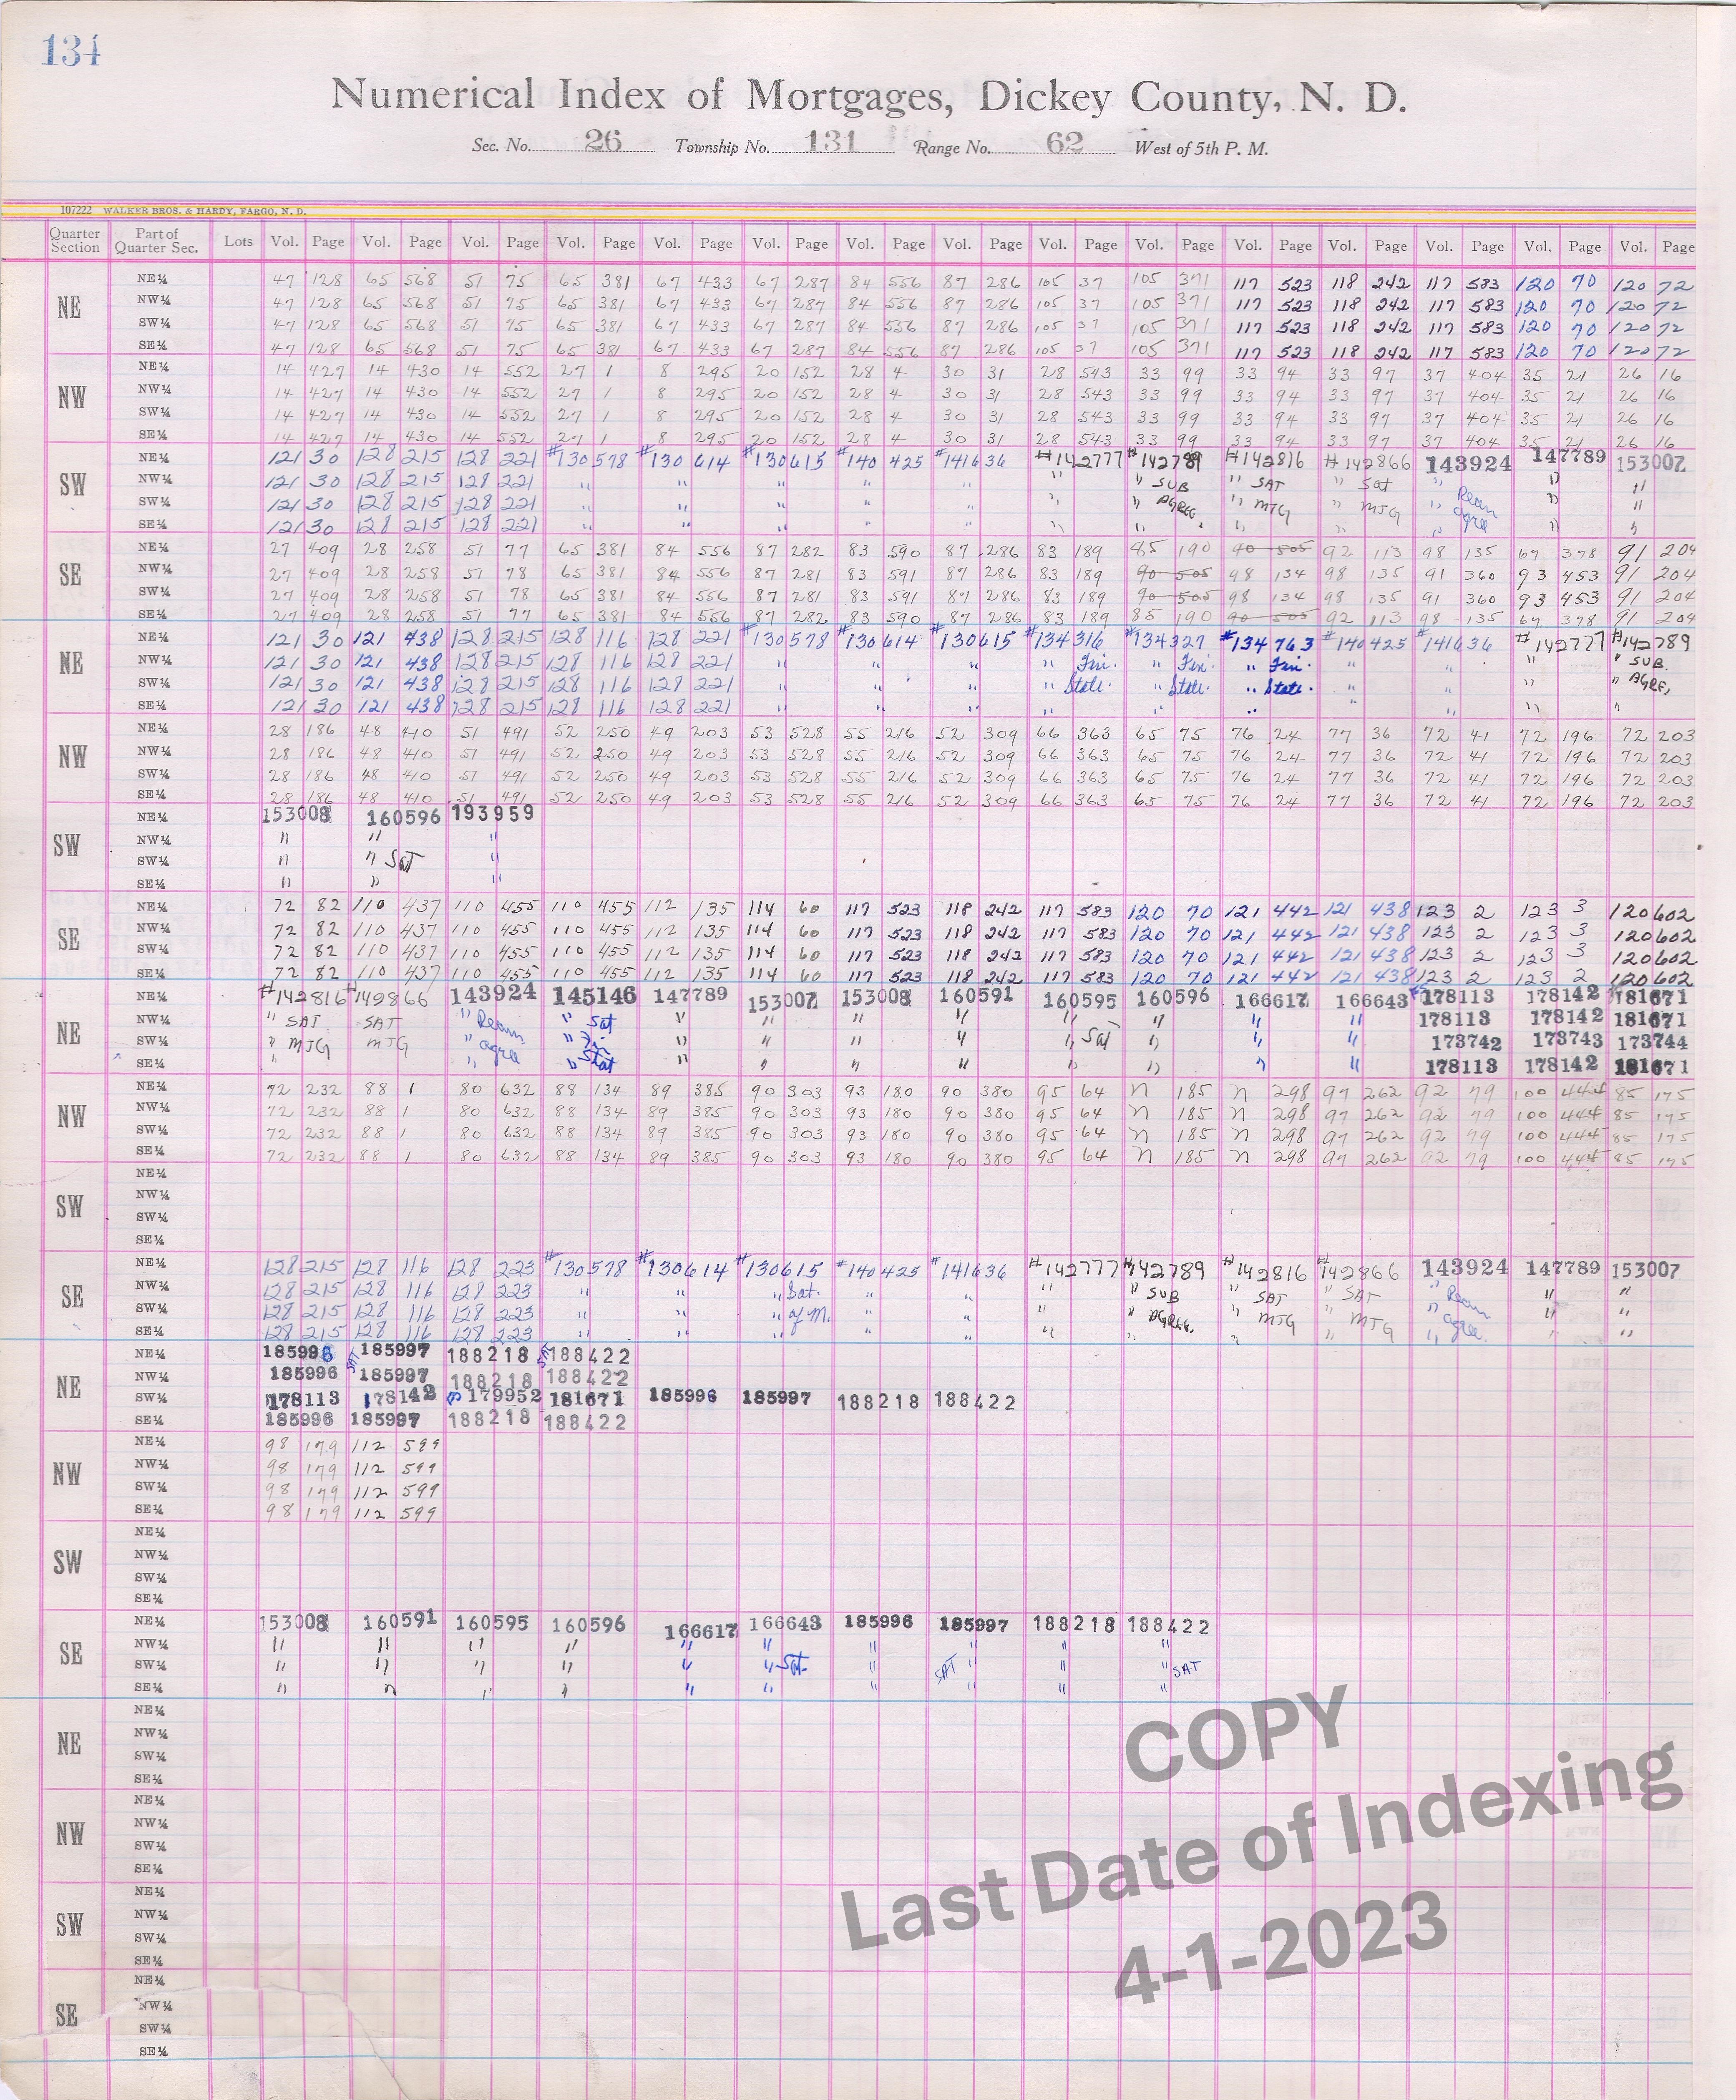 134
Numerical Index of Mortgages, Dickey County, N. D.
Sec. No. 26 Township No. 131 Range No. 62 West of 5th P. M.
107222 WALKER BROS. & HARDY, FARGO, N. D.
Quarter Section Part of Quarter Sec. Lots Vol. Page Vol. Page Vol. Page Vol. Page Vol. Page Vol. Page Vol. Page Vol. Page Vol. Page Vol. Page Vol. Page Vol. Page Vol. Page Vol. Page Vol. Page
NE
NE¼ 47 128 65 568 51 75 65 381 67 433 67 287 84 556 87 286 105 37 105 371 117 523 118 242 117 583 120 70 120 72
NW¼ 47 128 65 568 51 75 65 381 67 433 67 287 84 556 87 286 105 37 105 371 117 523 118 242 117 583 120 70 120 72
SW¼ 47 128 65 568 51 75 65 381 67 433 67 287 84 556 87 286 105 37 105 371 117 523 118 242 117 583 120 70 120 72
SE¼ 47 128 65 568 51 75 65 381 67 433 67 287 84 556 87 286 105 37 105 371 117 523 118 242 117 583 120 70 120 72
NW
NE¼ 14 427 14 430 14 552 27 1 8 295 20 152 28 4 30 31 28 543 33 99 33 94 33 97 37 404 35 21 26 16
NW¼ 14 427 14 430 14 552 27 1 8 295 20 152 28 4 30 31 28 543 33 99 33 94 33 97 37 404 35 21 26 16
SW¼ 14 427 14 430 14 552 27 1 8 295 20 152 28 4 30 31 28 543 33 99 33 94 33 97 37 404 35 21 26 16
SE¼ 14 427 14 430 14 552 27 1 8 295 20 152 28 4 30 31 28 543 33 99 33 94 33 97 37 404 35 21 26 16
SW
NE¼ 121 30 128 215 128 221 #130578 #130614 #130615 #140425 #141636 #142777 #142789 #142816 #142866 143924 147789 153007
NW¼ 121 30 128 215 128 221 " " " " " " " SUB " SAT " Sat " " "
SW¼ 121 30 128 215 128 221 " " " " " " " AGREE. " MTG " MTG " Ream agre " "
SE¼ 121 30 128 215 128 221 " " " " " " " " " " " "
SE
NE¼ 27 409 28 258 51 77 65 381 84 556 87 282 83 590 87 286 83 189 85 190 90 505 92 113 98 135 67 378 91 204
NW¼ 27 409 28 258 51 78 65 381 84 556 87 281 83 591 87 286 83 189 90 505 98 134 98 135 91 360 93 453 91 204
SW¼ 27 409 28 258 51 78 65 381 84 556 87 281 83 591 87 286 83 189 90 505 98 134 98 135 91 360 93 453 91 204
SE¼ 27 409 28 258 51 77 65 381 84 556 87 282 83 590 87 286 83 189 85 190 90 505 92 113 98 135 67 378 91 204
NE
NE¼ 121 30 121 438 128 215 128 116 128 221 #130578 #130614 #130615 #134316 #134327 #134763 #140425 #141636 #142777 #142789
NW¼ 121 30 121 438 128 215 128 116 128 221 " " " " Fin. " Fin. " Fin. " " " " SUB.
SW¼ 121 30 121 438 128 215 128 116 128 221 " " " " State. " State. " State. " " " " AGRE,
SE¼ 121 30 121 438 128 215 128 116 128 221 " " " " " " " " " "
NW
NE¼ 28 186 48 410 51 491 52 250 49 203 53 528 55 216 52 309 66 363 65 75 76 24 77 36 72 41 72 196 72 203
NW¼ 28 186 48 410 51 491 52 250 49 203 53 528 55 216 52 309 66 363 65 75 76 24 77 36 72 41 72 196 72 203
SW¼ 28 186 48 410 51 491 52 250 49 203 53 528 55 216 52 309 66 363 65 75 76 24 77 36 72 41 72 196 72 203
SE¼ 28 186 48 410 51 491 52 250 49 203 53 528 55 216 52 309 66 363 65 75 76 24 77 36 72 41 72 196 72 203
SW
NE¼ 153008 160596 193959
NW¼ " " "
SW¼ " " Sat "
SE¼ " " "
SE
NE¼ 72 82 110 437 110 455 110 455 112 135 114 60 117 523 118 242 117 583 120 70 121 442 121 438 123 2 123 3 120 602
NW¼ 72 82 110 437 110 455 110 455 112 135 114 60 117 523 118 242 117 583 120 70 121 442 121 438 123 2 123 3 120 602
SW¼ 72 82 110 437 110 455 110 455 112 135 114 60 117 523 118 242 117 583 120 70 121 442 121 438 123 2 123 3 120 602
SE¼ 72 82 110 437 110 455 110 455 112 135 114 60 117 523 118 242 117 583 120 70 121 442 121 438 123 2 123 2 120 602
NE
NE¼ #142816 #149866 143924 145146 147789 153007 153008 160591 160595 160596 166617 166643 178113 178142 181671
NW¼ " SAT SAT " Ream " Sat " " " " " " " " 178113 178142 181671
SW¼ " MTG MTG " agre " Fin " " " " " Sat " " " 173742 173743 173744
SE¼ " " " Stat " " " " " " " " 178113 178142 181671
NW
NE¼ 72 232 88 1 80 632 88 134 89 385 90 303 93 180 90 380 95 64 n 185 n 298 97 262 92 79 100 444 85 175
NW¼ 72 232 88 1 80 632 88 134 89 385 90 303 93 180 90 380 95 64 n 185 n 298 97 262 92 79 100 444 85 175
SW¼ 72 232 88 1 80 632 88 134 89 385 90 303 93 180 90 380 95 64 n 185 n 298 97 262 92 79 100 444 85 175
SE¼ 72 232 88 1 80 632 88 134 89 385 90 303 93 180 90 380 95 64 n 185 n 298 97 262 92 79 100 444 85 175
SW
NE¼
NW¼
SW¼
SE¼
SE
NE¼ 128 215 128 116 128 223 #130578 #130614 #130615 #140425 #141636 #142777 #142789 #142816 #142866 143924 147789 153007
NW¼ 128 215 128 116 128 223 " " " Sat. " " " " SUB " SAT " SAT " Ream " "
SW¼ 128 215 128 116 128 223 " " " of M. " " " " AGREE. " MTG " MTG " agre. " "
SE¼ 128 215 128 116 128 223 " " " " " " " " " " "
NE
NE¼ 185996 SAT 185997 188218 SAT 188422
NW¼ 185996 185997 188218 188422
SW¼ 178113 178142 179952 181671 185996 185997 188218 188422
SE¼ 185996 185997 188218 188422
NW
NE¼ 98 179 112 599
NW¼ 98 179 112 599
SW¼ 98 179 112 599
SE¼ 98 179 112 599
SW
NE¼
NW¼
SW¼
SE¼
SE
NE¼ 153008 160591 160595 160596 166617 166643 185996 185997 188218 188422
NW¼ " " " " " " " " " "
SW¼ " " " " " " Sat. " SAT " " " SAT
SE¼ " " " " " " " " " "
NE
NE¼
NW¼
SW¼
SE¼
NW
NE¼
NW¼
SW¼
SE¼
SW
NE¼
NW¼
SW¼
SE¼
SE
NE¼
NW¼
SW¼
SE¼
COPY
Last Date of Indexing
4-1-2023